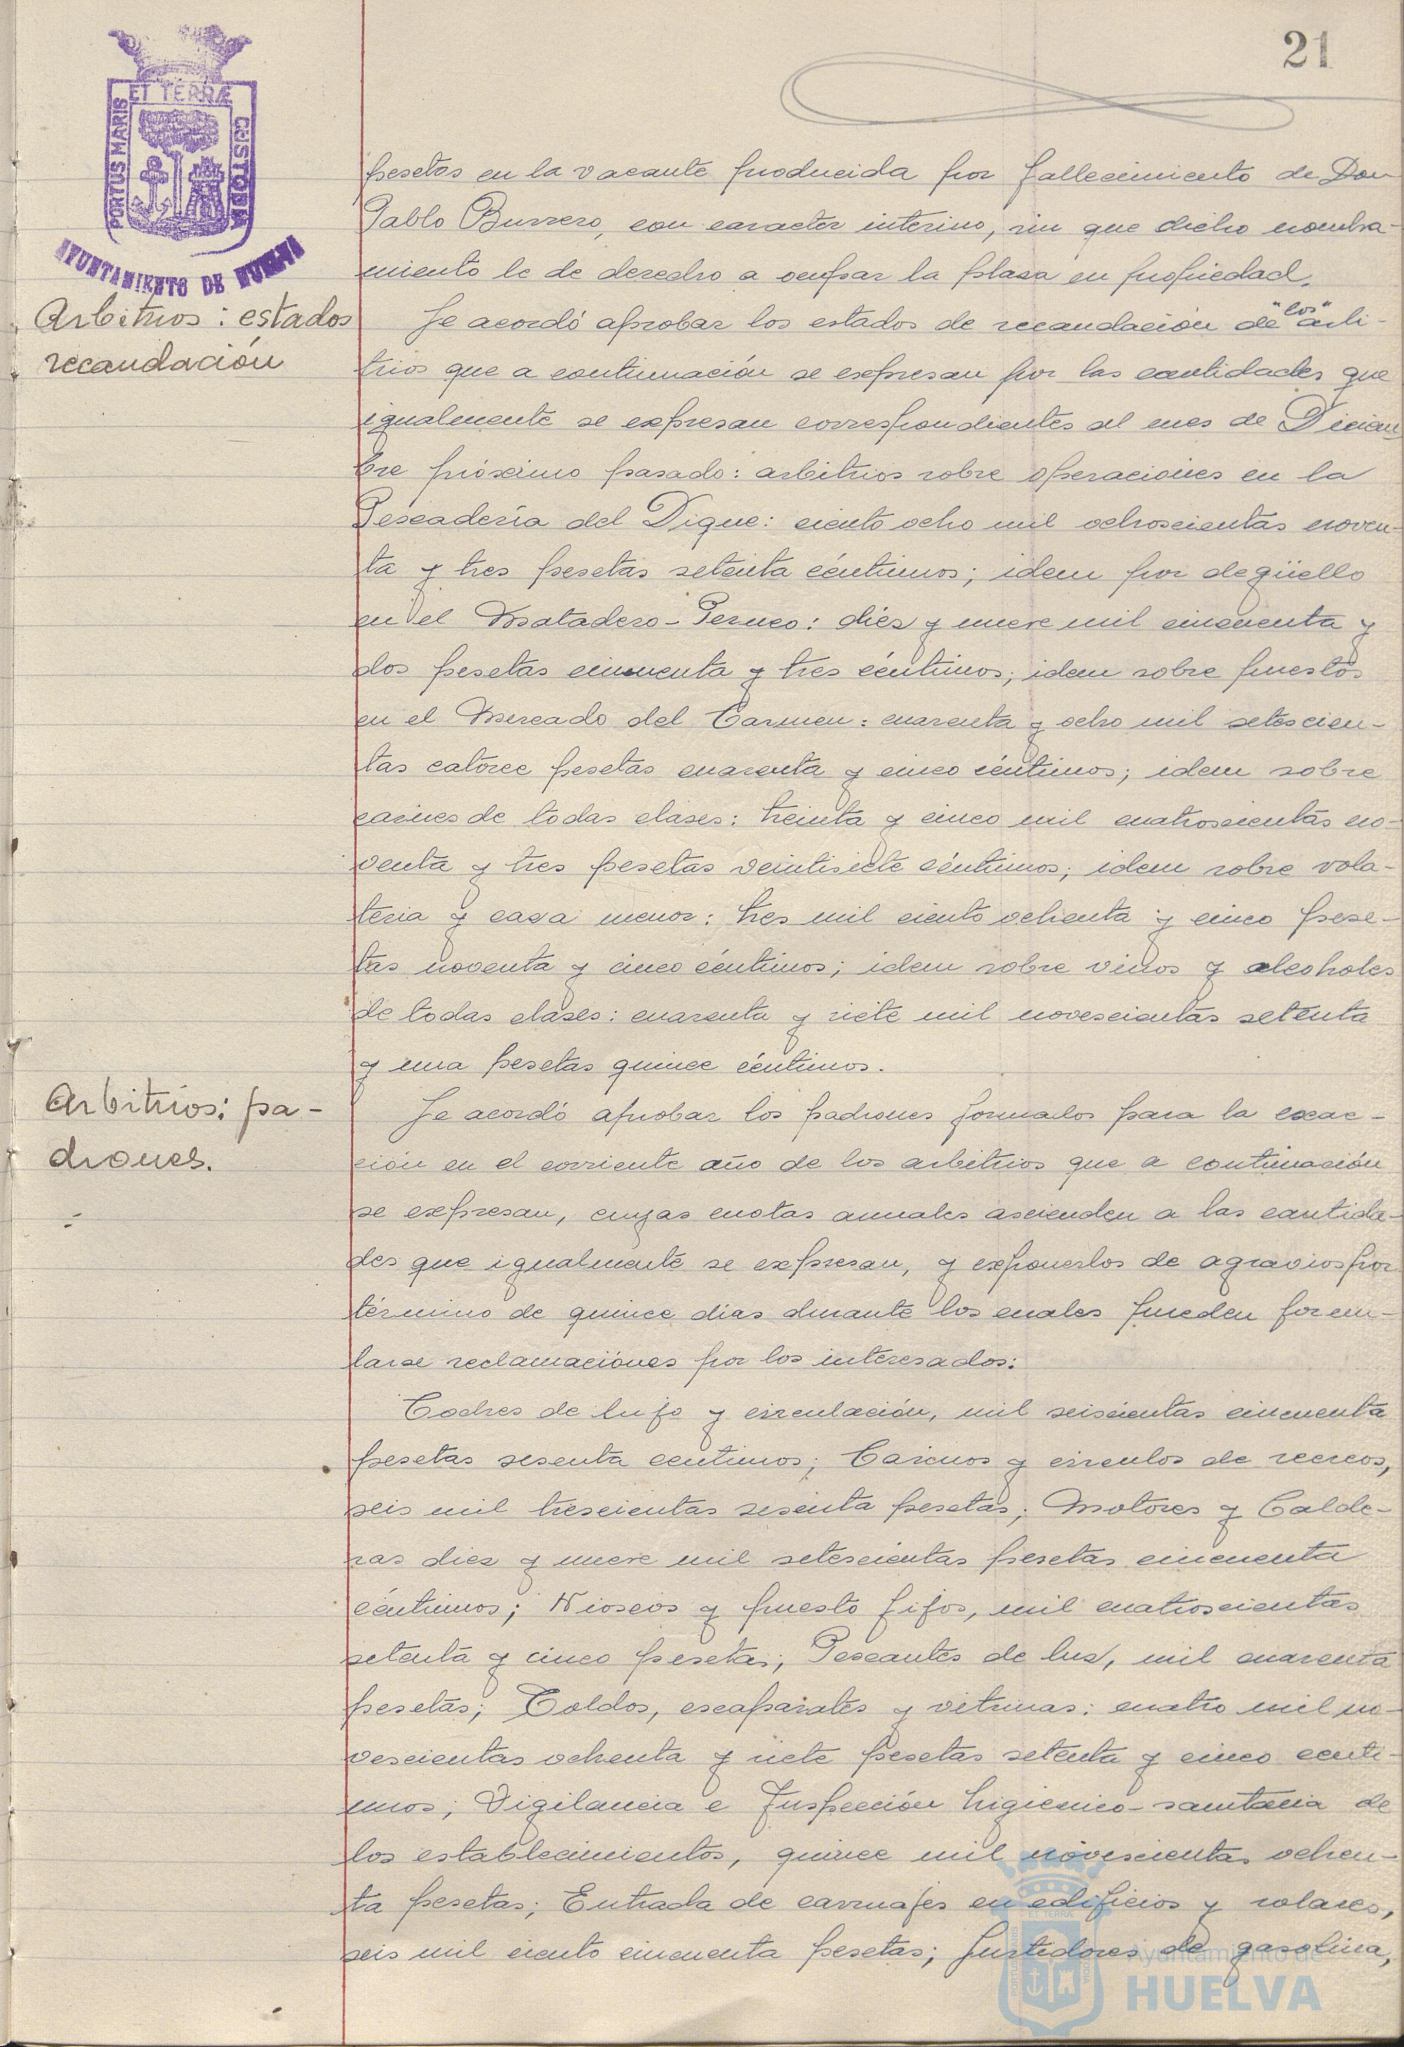 21
ET TERRÆ
PORTUS MARIS
CUSTODIA
AYUNTAMIENTO DE HUELVA
pesetas en la vacante producida por fallecimiento de Don
Pablo Burrero, con caracter interino, sin que dicho nombra-
miento le de derecho a ocupar la plaza en propiedad.
Arbitrios: estados
recaudación
Se acordó aprobar los estados de recaudación de "los" arbi-
trios que a continuación se expresan por las cantidades que
igualmente se expresan correspondientes al mes de Diciem
bre próximo pasado: arbitrios sobre operaciones en la
Pescadería del Dique: ciento ocho mil ochoscientas noven-
ta y tres pesetas setenta céntimos; idem por degüello
en el Matadero-Perneo: diez y nueve mil cincuenta y
dos pesetas cincuenta y tres céntimos; idem sobre puestos
en el Mercado del Carmen: cuarenta y ocho mil setescien-
tas catorce pesetas cuarenta y cinco céntimos; idem sobre
carnes de todas clases: treinta y cinco mil cuatroscientas no-
venta y tres pesetas veintisiete céntimos; idem sobre vola-
teria y caza menor: tres mil ciento ochenta y cinco pese-
tas noventa y cinco céntimos; idem sobre vinos y alcoholes
de todas clases: cuarenta y siete mil novescientas setenta
y una pesetas quince céntimos.
Arbitrios: pa-
drones.
Se acordó aprobar los padrones formados para la exac-
ción en el corriente año de los arbitrios que a continuación
se expresan, cuyas cuotas anuales ascienden a las cantida-
des que igualmente se expresan, y exponerlos de agravios por
término de quince dias durante los cuales pueden formu-
larse reclamaciones por los interesados:
Coches de lujo y circulación, mil seiscientas cincuenta
pesetas sesenta centimos; Casinos y circulos de recreos,
seis mil trescientas sesenta pesetas; Motores y Calde-
ras diez y nueve mil setescientas pesetas cincuenta
céntimos; Kioscos y puesto fijos, mil cuatroscientas
setenta y cinco pesetas; Pescantes de luz, mil cuarenta
pesetas; Toldos, escaparates y vitrinas: cuatro mil no-
vescientas ochenta y siete pesetas setenta y cinco centi-
mos; Vigilancia e Inspección higienico-sanitaria de
los establecimientos, quince mil novescientas ochen-
ta pesetas; Entrada de carruajes en edificios y solares,
seis mil ciento cincuenta pesetas; Surtidores de gasolina,
Ayuntamiento de
HUELVA